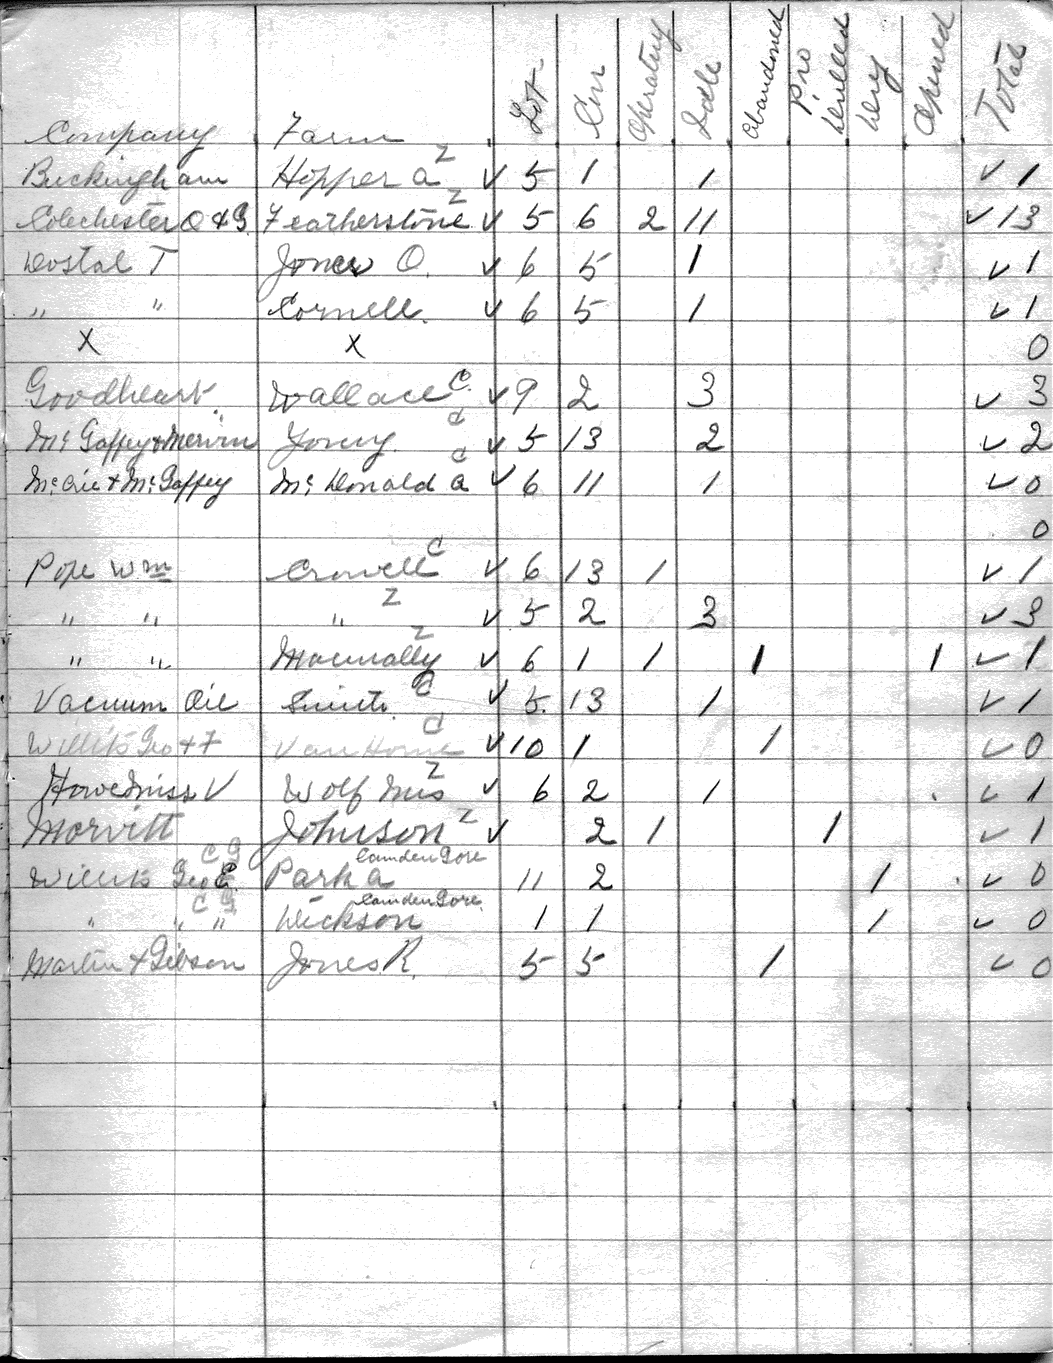 Company Farm Lot Con Operating Idle Abandoned Pro Drilled Dry Opened Total
Buckingham Hopper A Z ✓ 5 1 1 ✓ 1
Colechester O & G Featherstone Z ✓ 5 6 2 11 ✓ 13
Dostal T Jones O. ✓ 6 5 1 ✓ 1
" " Cornell. ✓ 6 5 1 ✓ 1
X X 0
Goodheart Wallace C. ✓ 9 2 3 ✓ 3
Mc Gaffey & Mervin Young C ✓ 5 13 2 ✓ 2
& Mc Gaffey Mc Donald A C ✓ 6 11 1 ✓ 0
0
Pope Wm Crowell C ✓ 6 13 1 ✓ 1
" " " Z ✓ 5 2 3 ✓ 3
" " Macnally Z ✓ 6 1 1 1 1 ✓ 1
Vacuum Oil Smith C ✓ 5. 13 1 ✓ 1
Willits Geo & F Van Horne C ✓ 10 1 1 ✓ 0
Howe Miss V Wolf Mrs Z ✓ 6 2 1 ✓ 1
Morvitt Johnson Z ✓ 2 1 1 ✓ 1
Willits Geo E. C G Park A Camden Gore 11 2 1 ✓ 0
" " " C G Dickson Camden Gore. 1 1 1 ✓ 0
Martin & Gibson Jones R. 5 5 1 ✓ 0